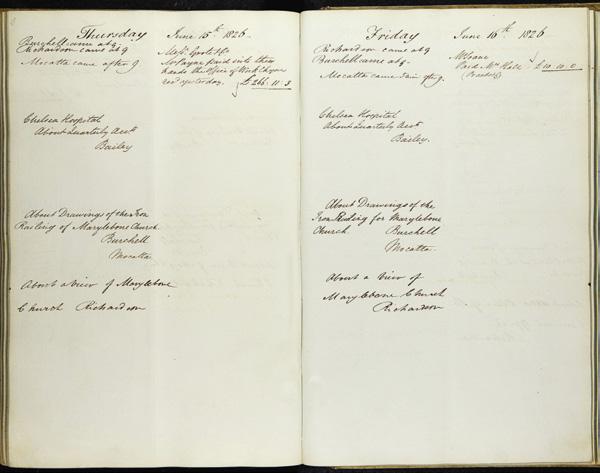 Thursday June 15th 1826
Burchell came at 9
Richardson came at 9
Mocatta came after 9
Messrs Grote & Co
paid into their
hands the Office of Works
recd yesterday. £266.11.3
Chelsea Hospital
About Quarterly Accts
Bailey
About Drawings of the Iron
Railing of Marylebone Church
Burchell
Mocatta
About a View of Marylebone
Church Richardson
Friday June 16th 1826
Richardson came at 9
Burchell came at 9
Mocatta came 5 min after 9
Mr Soane
Paid Mr Hall £10.10.0
Chelsea Hospital
About Quarterly Accts
Bailey.
About Drawings of the
Iron Railing for Marylebone
Church Burchell
Mocatta
About a View of
Marylebone Church
Richardson